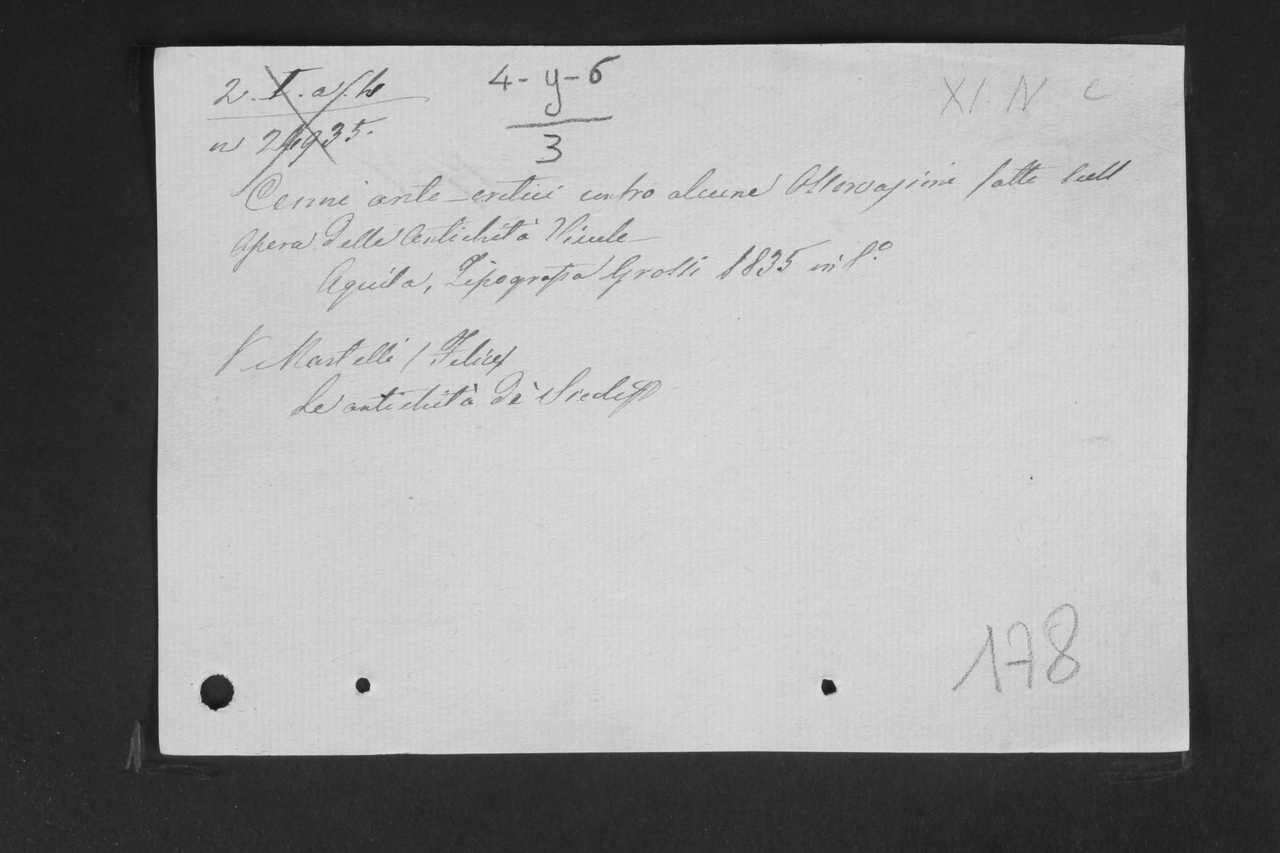 4-y-6
3
XI N c
n 24935.
Cenni ante-critici contro alcune Osservazioni fatte sull
Opera delle Antichità Sicule
Aquila, Tipografia Grossi 1835 in 8.°
V. Martelli (Felice)
Le antichità de' Siculi
178